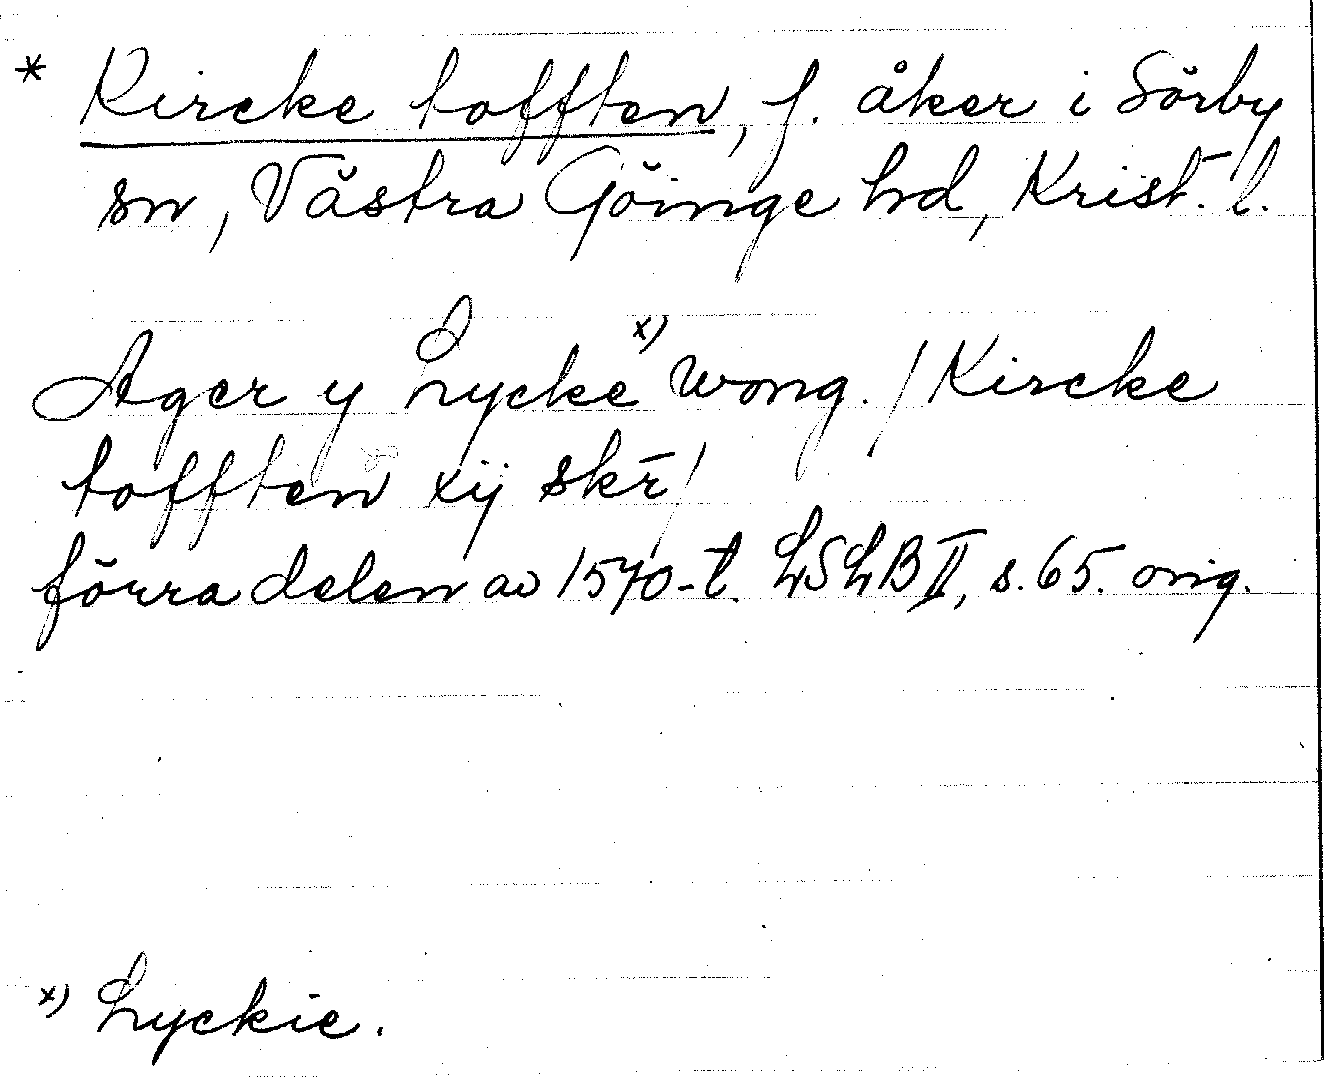 * Kircke tofften, f. åker i Sörby
sn, Västra Göinge hd, Krist. l.
Ager y Lycke x) wong. / Kircke
tofften xij skr̄ /
förra delen av 1570-t. LSLB II, s. 65. orig.
x) Lyckie.